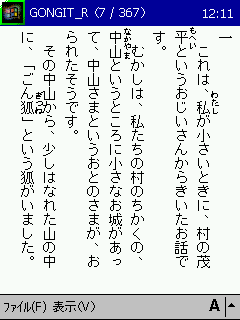 GONGIT_R (7 / 367) 12:11
一
わたし
これは、私が小さいときに、村の茂
もへい
平というおじいさんからきいたお話で
す。
むかしは、私たちの村のちかくの、
なかやま
中山というところに小さなお城があっ
て、中山さまというおとのさまが、お
られたそうです。
その中山から、少しはなれた山の中
ぎつね
に、「ごん狐」という狐がいました。
ファイル(F) 表示(V) A